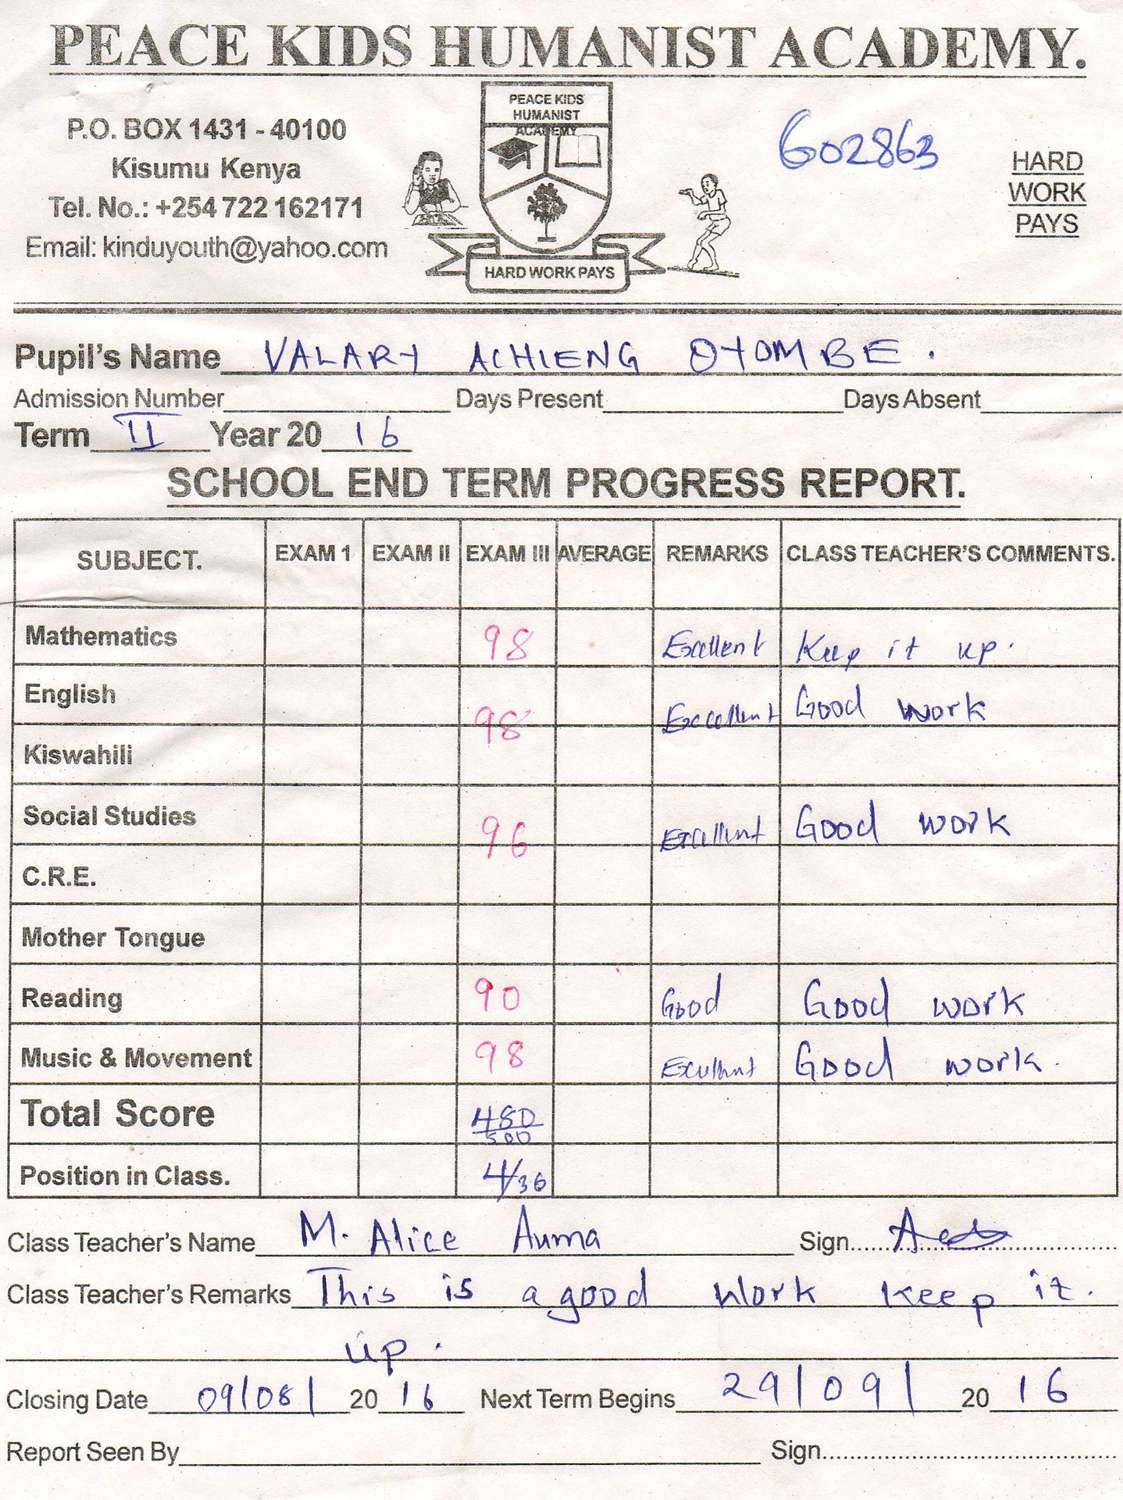 PEACE KIDS HUMANIST ACADEMY.
P.O. BOX 1431 - 40100
Kisumu Kenya
Tel. No.: +254 722 162171
Email: kinduyouth@yahoo.com
PEACE KIDS
HUMANIST
ACADEMY
HARD WORK PAYS
602863
HARD
WORK
PAYS
Pupil's Name VALARY ACHIENG OYOMBE.
Admission Number Days Present Days Absent
Term II Year 20 16
SCHOOL END TERM PROGRESS REPORT.
SUBJECT. EXAM 1 EXAM II EXAM III AVERAGE REMARKS CLASS TEACHER'S COMMENTS.
Mathematics 98 Excellent Keep it up.
English 98 Excellent Good work
Kiswahili
Social Studies 96 Excellent Good work
C.R.E.
Mother Tongue
Reading 90 Good Good work
Music & Movement 98 Excellent Good work.
Total Score 480/500
Position in Class. 4/36
Class Teacher's Name M. Alice Auma Sign
Class Teacher's Remarks This is a good work keep it.
up.
Closing Date 09/08/ 20 16 Next Term Begins 29/09/ 20 16
Report Seen By Sign